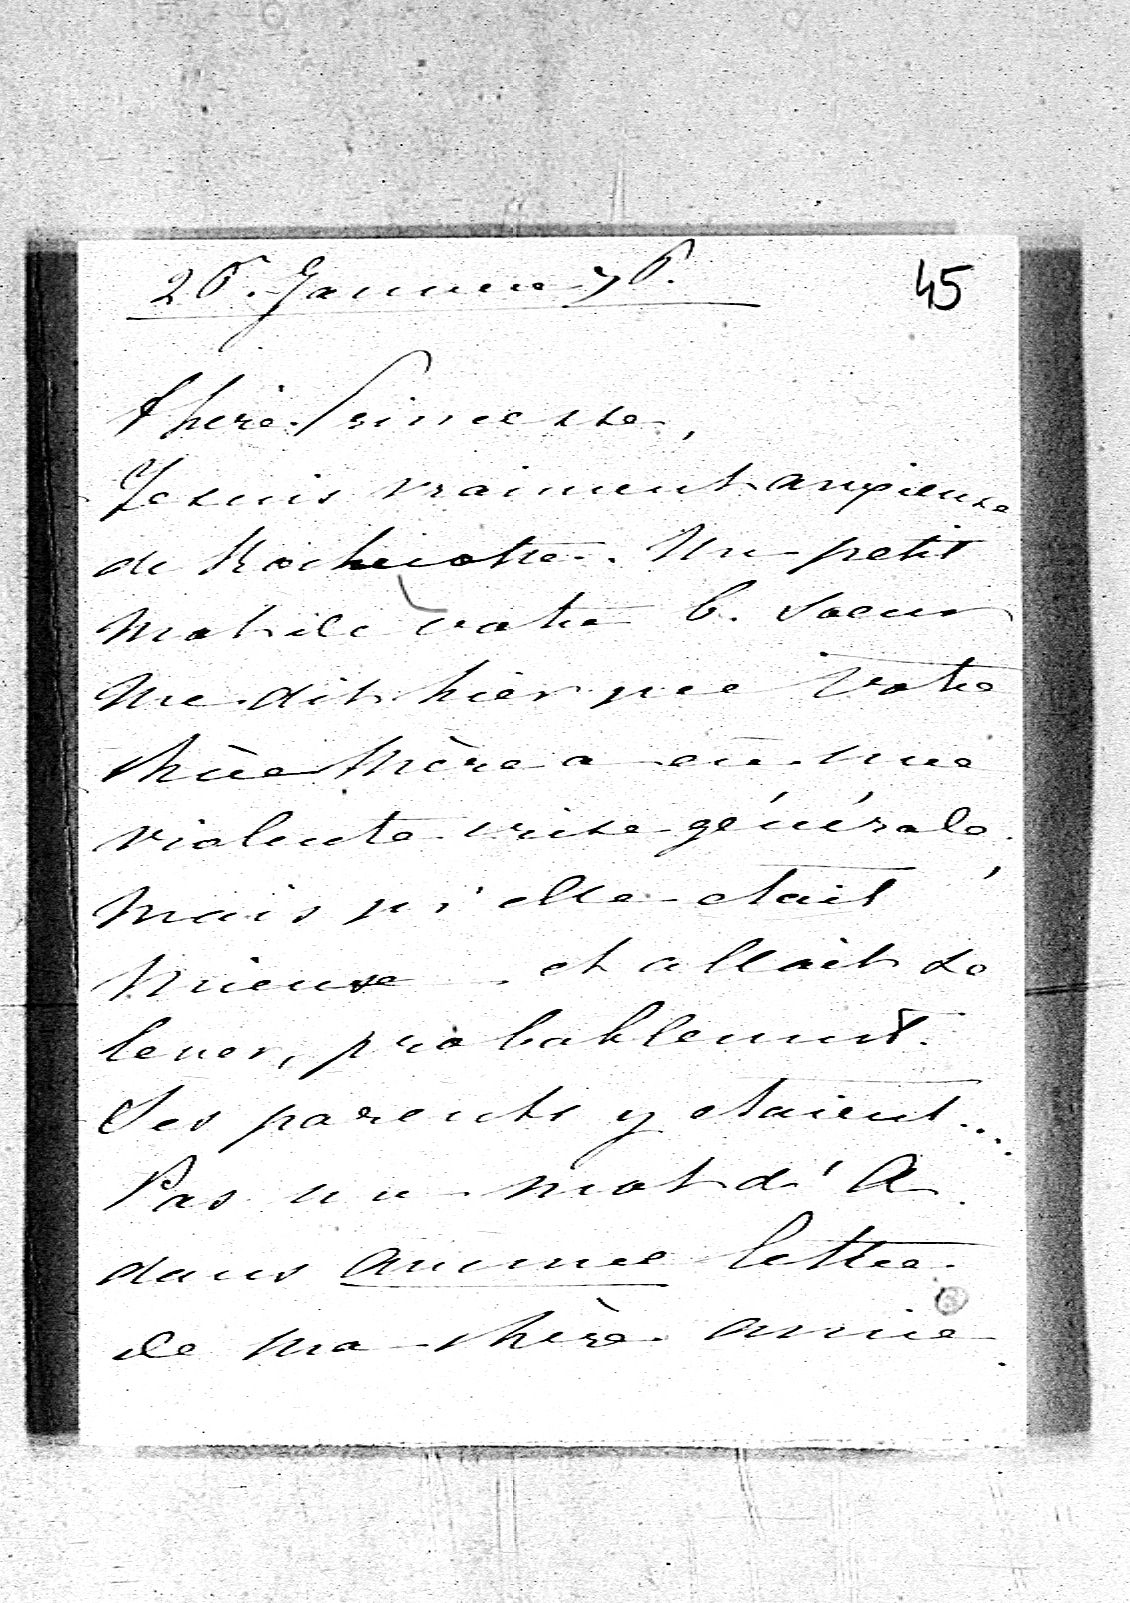 26. Janvier 76.
45
Chère Princesse,
Je suis vraiment anxieuse
de Rochecotte. Un petit
mot de votre b. soeur
me dit hier que Votre
chère Mère a eu une
violente crise générale,
mais qu'elle etait
mieux et allait se
lever, probablement.
Ses parents y etaient...
Pas un mot d'A.
dans aucune lettre
de ma chère amie.